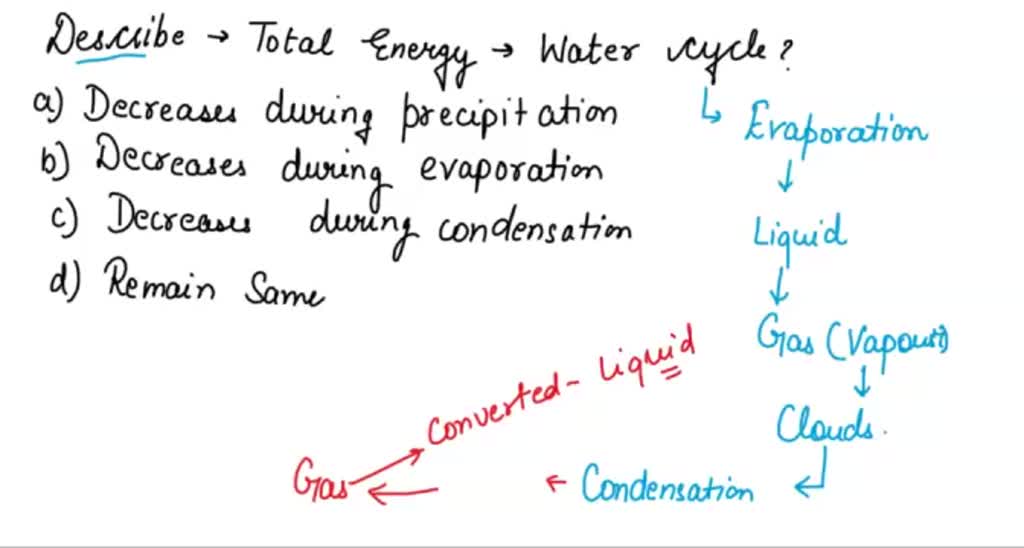 Describe → Total Energy → Water cycle?
a) Decreases during precipitation
b) Decreases during evaporation
c) Decreases during condensation
d) Remain Same
↳ Evaporation
↓
Liquid
↓
Gas (Vapour)
↓
Clouds.
← Condensation ↵
Gas ← → Converted - Liquid